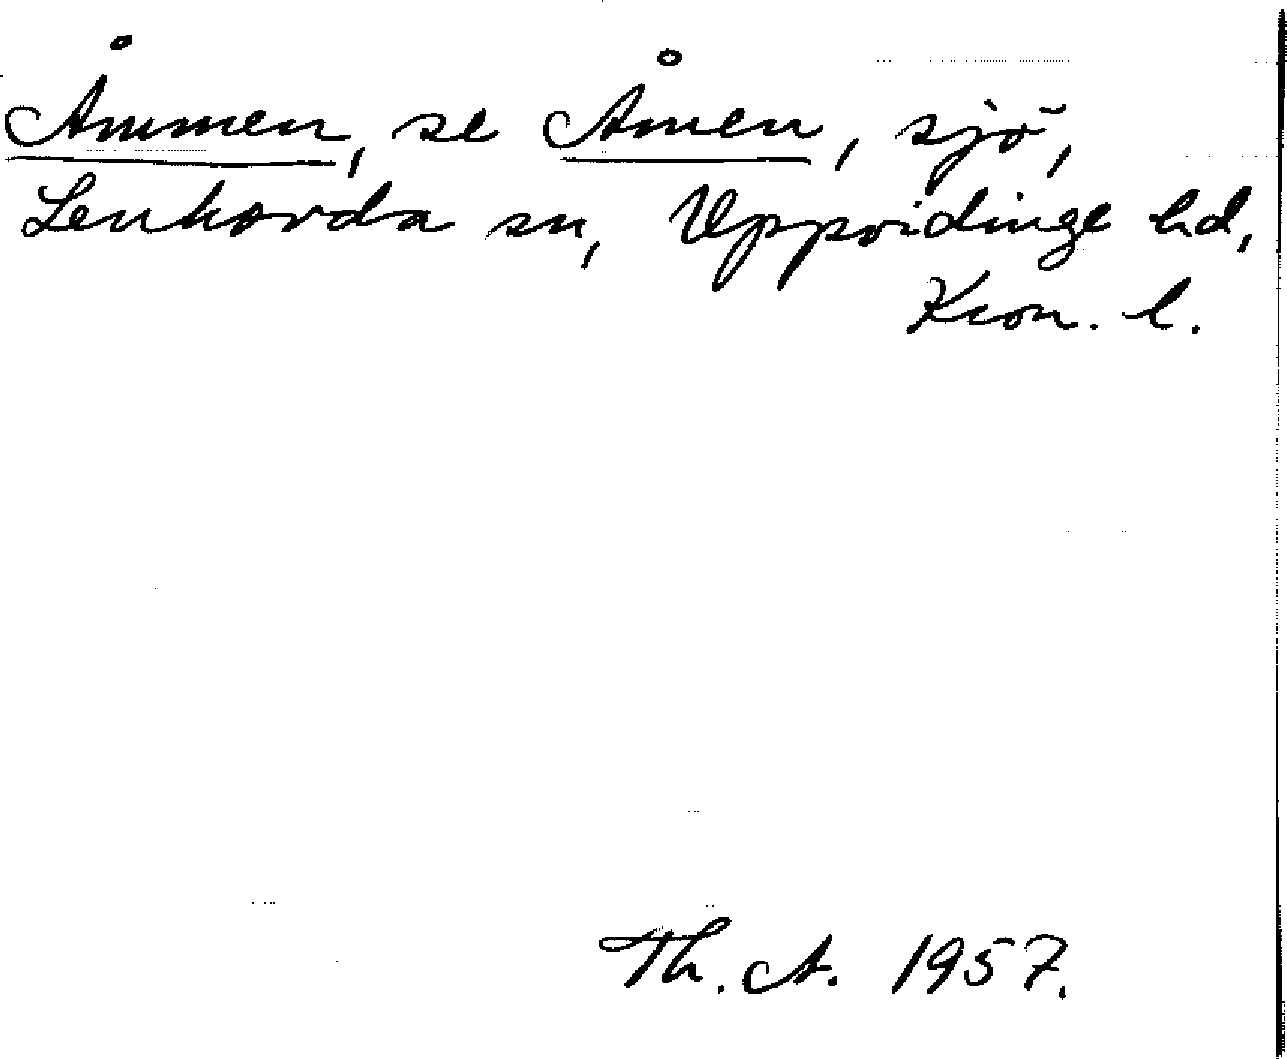 Åmmen, se Åmen, sjö,
Lenhovda sn, Uppvidinge hd,
Kron. l.
Th. A. 1957.